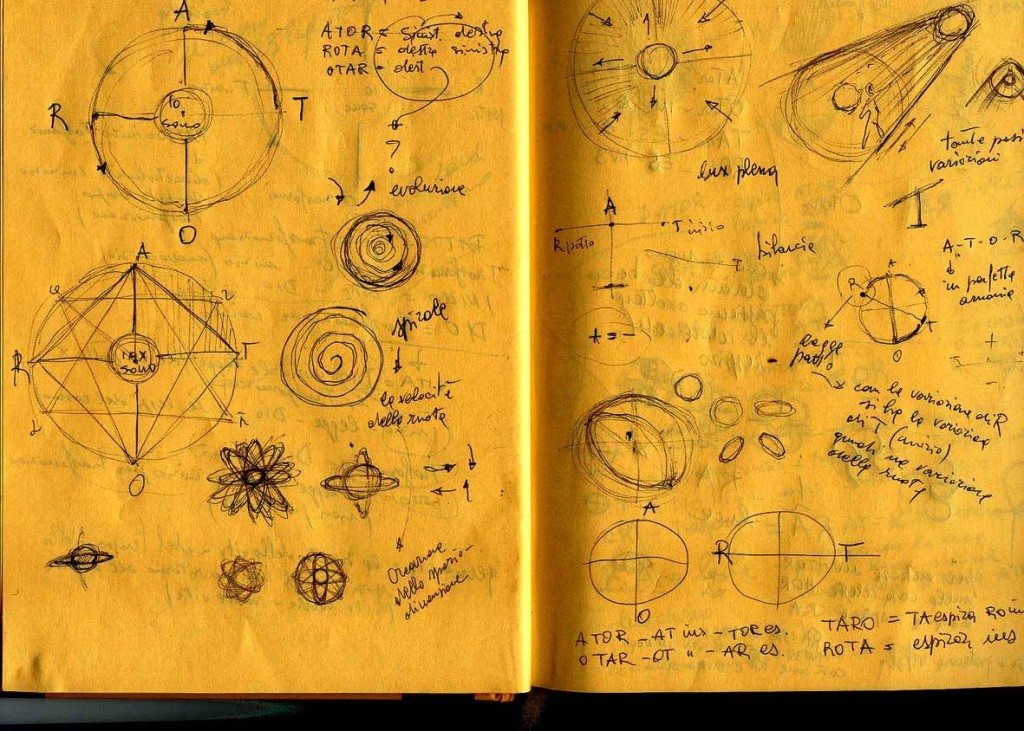 A
R
T
O
Io
sono
ATOR = sinist. destra
ROTA = destra sinistra
OTAR = dest
evoluzione
A
R
T
O
sono
spirale
la velocità
della ruota
Creazione
dello spazio-
dimensione
lux plena
variazioni
A
T inizio
bilancia
+ = -
A-T-O-R
in perfetta
armonia
A
R
T
O
legge
+
-
con la variazione di R
si ha la variazione
di T (inizio)
quindi una variazione
della ruota
A
O
R
T
ATOR - AT ins - TOR es.
OTAR - OT " - AR es.
TARO = TA espira RO in
ROTA = espiraz ins